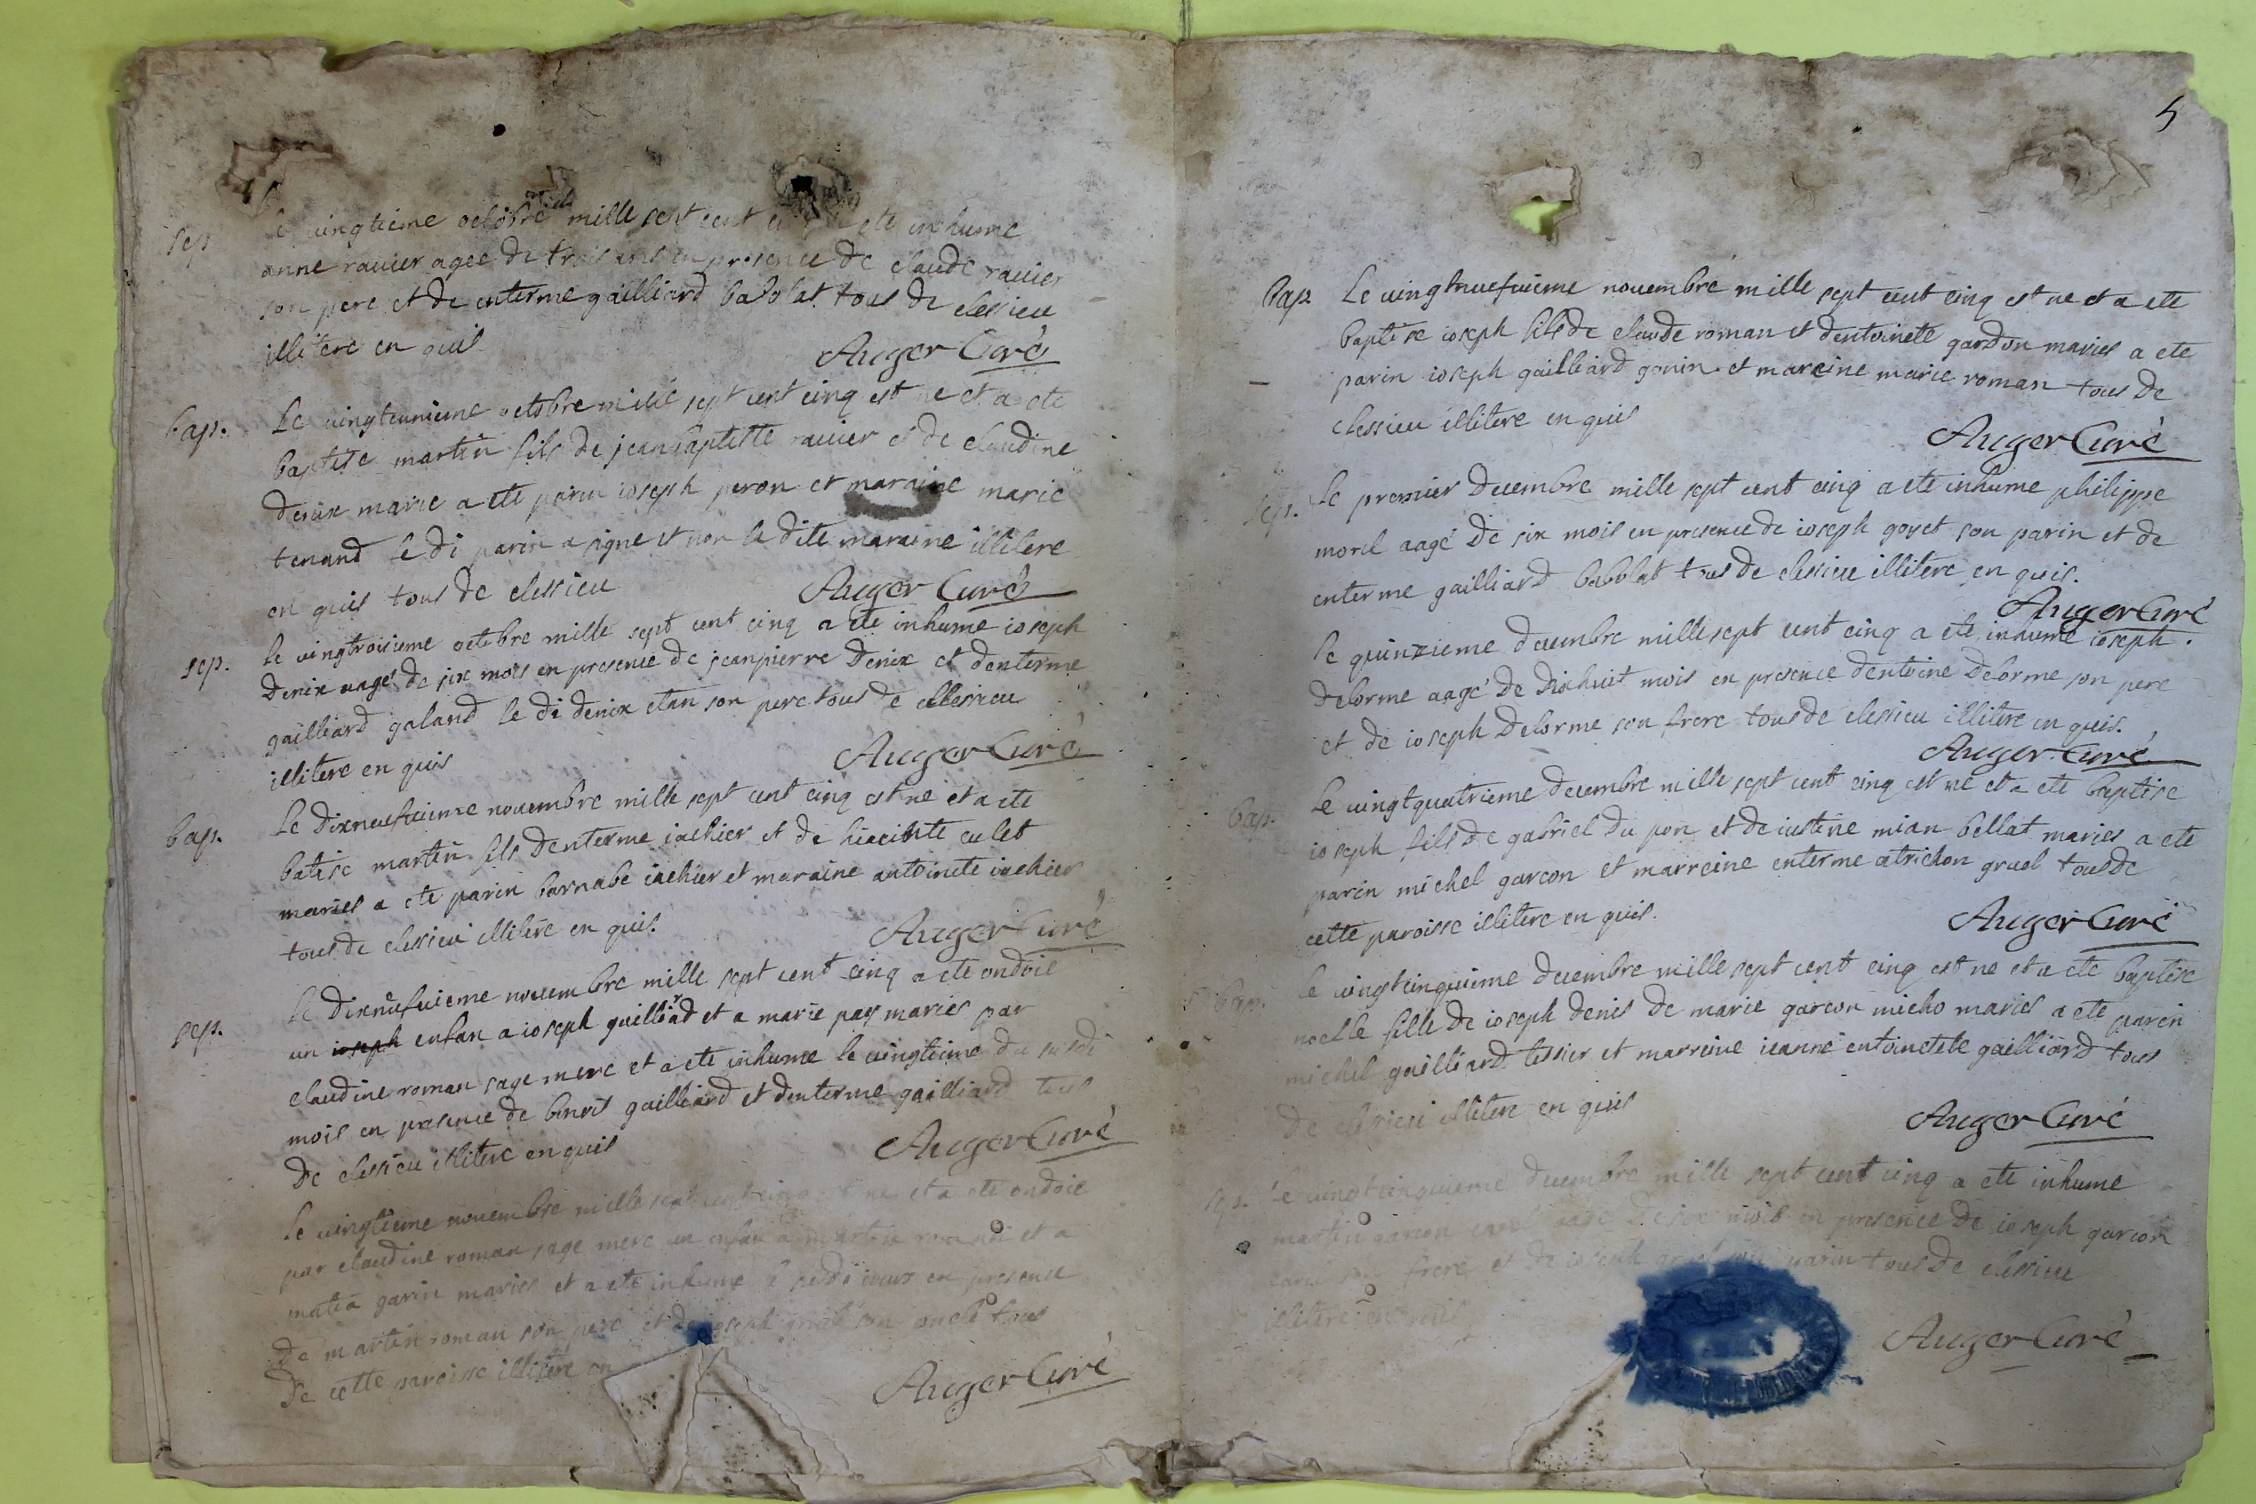 sep
vingtieme octobre mille sept cent ete inhume
anne rauier agee de trois ans en presence de claude rauier
son pere et de enterme gailliard babolat tous de clessieu
illitere en quis
Auger Curé
bap.
Le vingteunieme octobre mille sept cent cinq est ne et a ete
baptise martin fils de jean baptiste rauier et de claudine
denix marie a ete parin ioseph peron et maraine marie
tenand le di parin a signe et non la dite maraine illitere
en quis tous de clessieu
Auger Curé
sep.
le vingtroisieme octobre mille sept cent cinq a ete inhume ioseph
denix aage de six mois en presence de jeanpierre denix et denterme
gailliard galand le di denix etan son pere tous de clessieu
illitere en quis
Auger Curé
bap.
Le dixneufuieme nouembre mille sept cent cinq est ne et a ete
batise martin fils denterme iachier et de hiacinte culet
maries a ete parin barnabe iachier et maraine antoinete iachier
tous de clessieu illitere en quis.
Auger Curé
sep.
Le dixneufuieme nouembre mille sept cent cinq a ete ondoie
un ioseph enfan a ioseph gailliard et a marie pay maries par
claudine roman sage mere et a ete inhume le vingtieme du susdi
mois en presence de benoit gailliard et denterme gailliard tous
de clessieu illitere en quis
Auger Curé
le vingtieme nouembre mille sept cent cinq est ne et a ete ondoie
par claudine roman sage mere un enfan a martin roman et a
matia garin maries et a ete inhume le susdi iour en presence
de martin roman son pere et de ioseph son oncle tous
de cette paroisse illitere en
Auger Curé
5
bap.
Le vingtneufuieme nouembre mille sept cent cinq est ne et a ete
baptise ioseph fils de claude roman et dentoinete gardon maries a ete
parin ioseph gailliard gonin et mareine marie roman tous de
clessieu illitere en quis
Auger Curé
sep.
Le premier decembre mille sept cent cinq a ete inhume philippe
morel aagé de six mois en presence de ioseph goyet son parin et de
enterme gailliard babolat tous de clessieu illitere en quis.
Auger Curé
le quinzieme decembre mille sept cent cinq a ete inhumé ioseph
delorme aagé de dixhuit mois en presence dentoine delorme son pere
et de ioseph delorme son frere tous de clessieu illitere en quis.
Auger Curé
bap.
Le vingtquatrieme decembre mille sept cent cinq est ne et a ete baptise
ioseph fils de gabriel du pon et de iustine mian bellat maries a ete
parin michel garcon et marreine enterme atrichon gruel tous de
cette paroisse illitere en quis.
Auger Curé
bap.
le vingtcinquieme decembre mille sept cent cinq est ne et a ete baptise
noelle fille de ioseph denis de marie garcon micho maries a ete parin
michel gailliard tessier et marreine ieanne entoinetete gailliard tous
de clessieu illitere en quis
Auger Curé
sep.
Le vingtcinquieme decembre mille sept cent cinq a ete inhume
martin garcon aage de six mois en presence de ioseph garcon
frere et de ioseph parin tous de clessieu
illitere en quis
Auger Curé